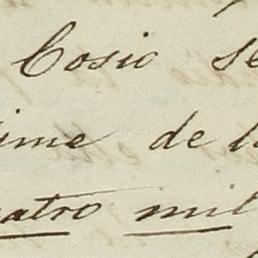 Cosio se
ime de la
uatro mil